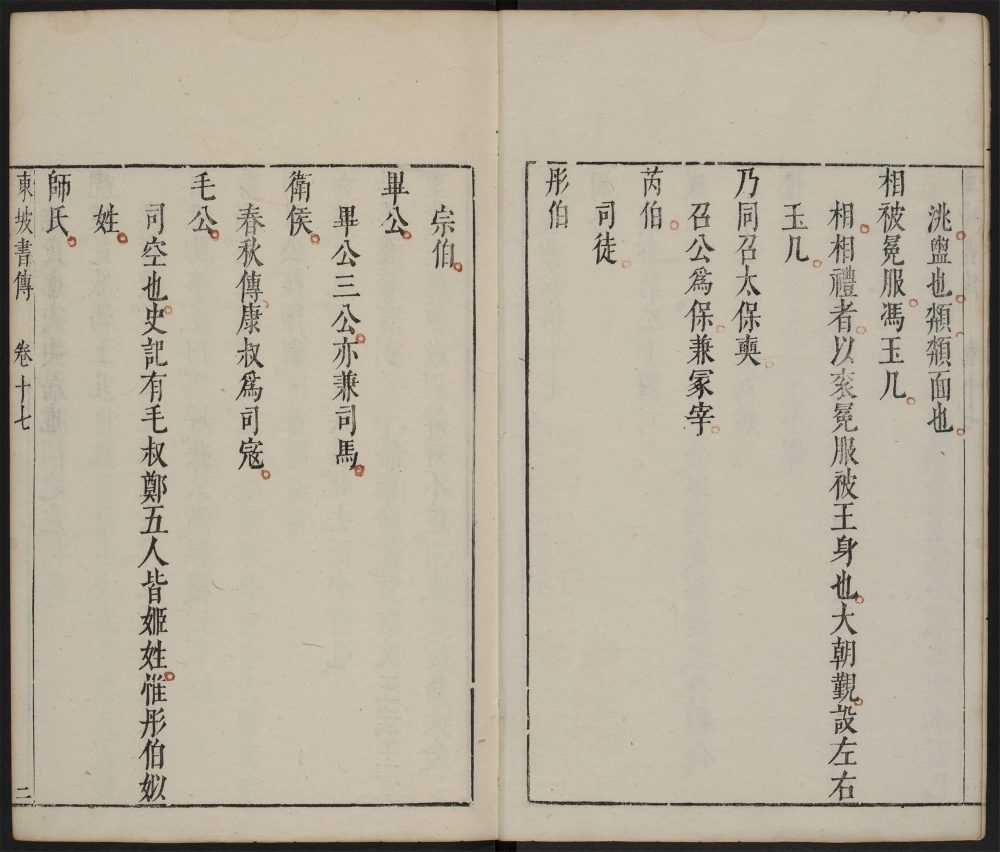 洮盥也頮頮面也
相被冕服馮玉几
相相禮者以衮冕服被王身也大朝覲設左右
玉几
乃同召太保奭
召公爲保兼冢宰
芮伯
司徒
彤伯
宗伯
畢公
畢公三公亦兼司馬
衛侯
春秋傳康叔爲司寇
毛公
司空也史記有毛叔鄭五人皆姬姓惟彤伯姒
姓
師氏
東坡書傳 卷十七 二